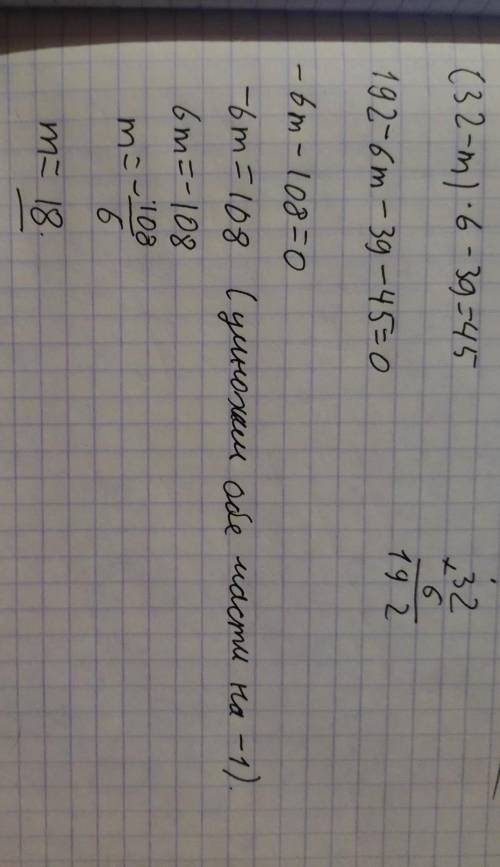 (32-m)·6-39=45
192-6m-39-45=0
-6m-108=0
-6m=108 (умножим обе части на -1).
6m=-108
m=-108/6
m=18.
×32
6
192